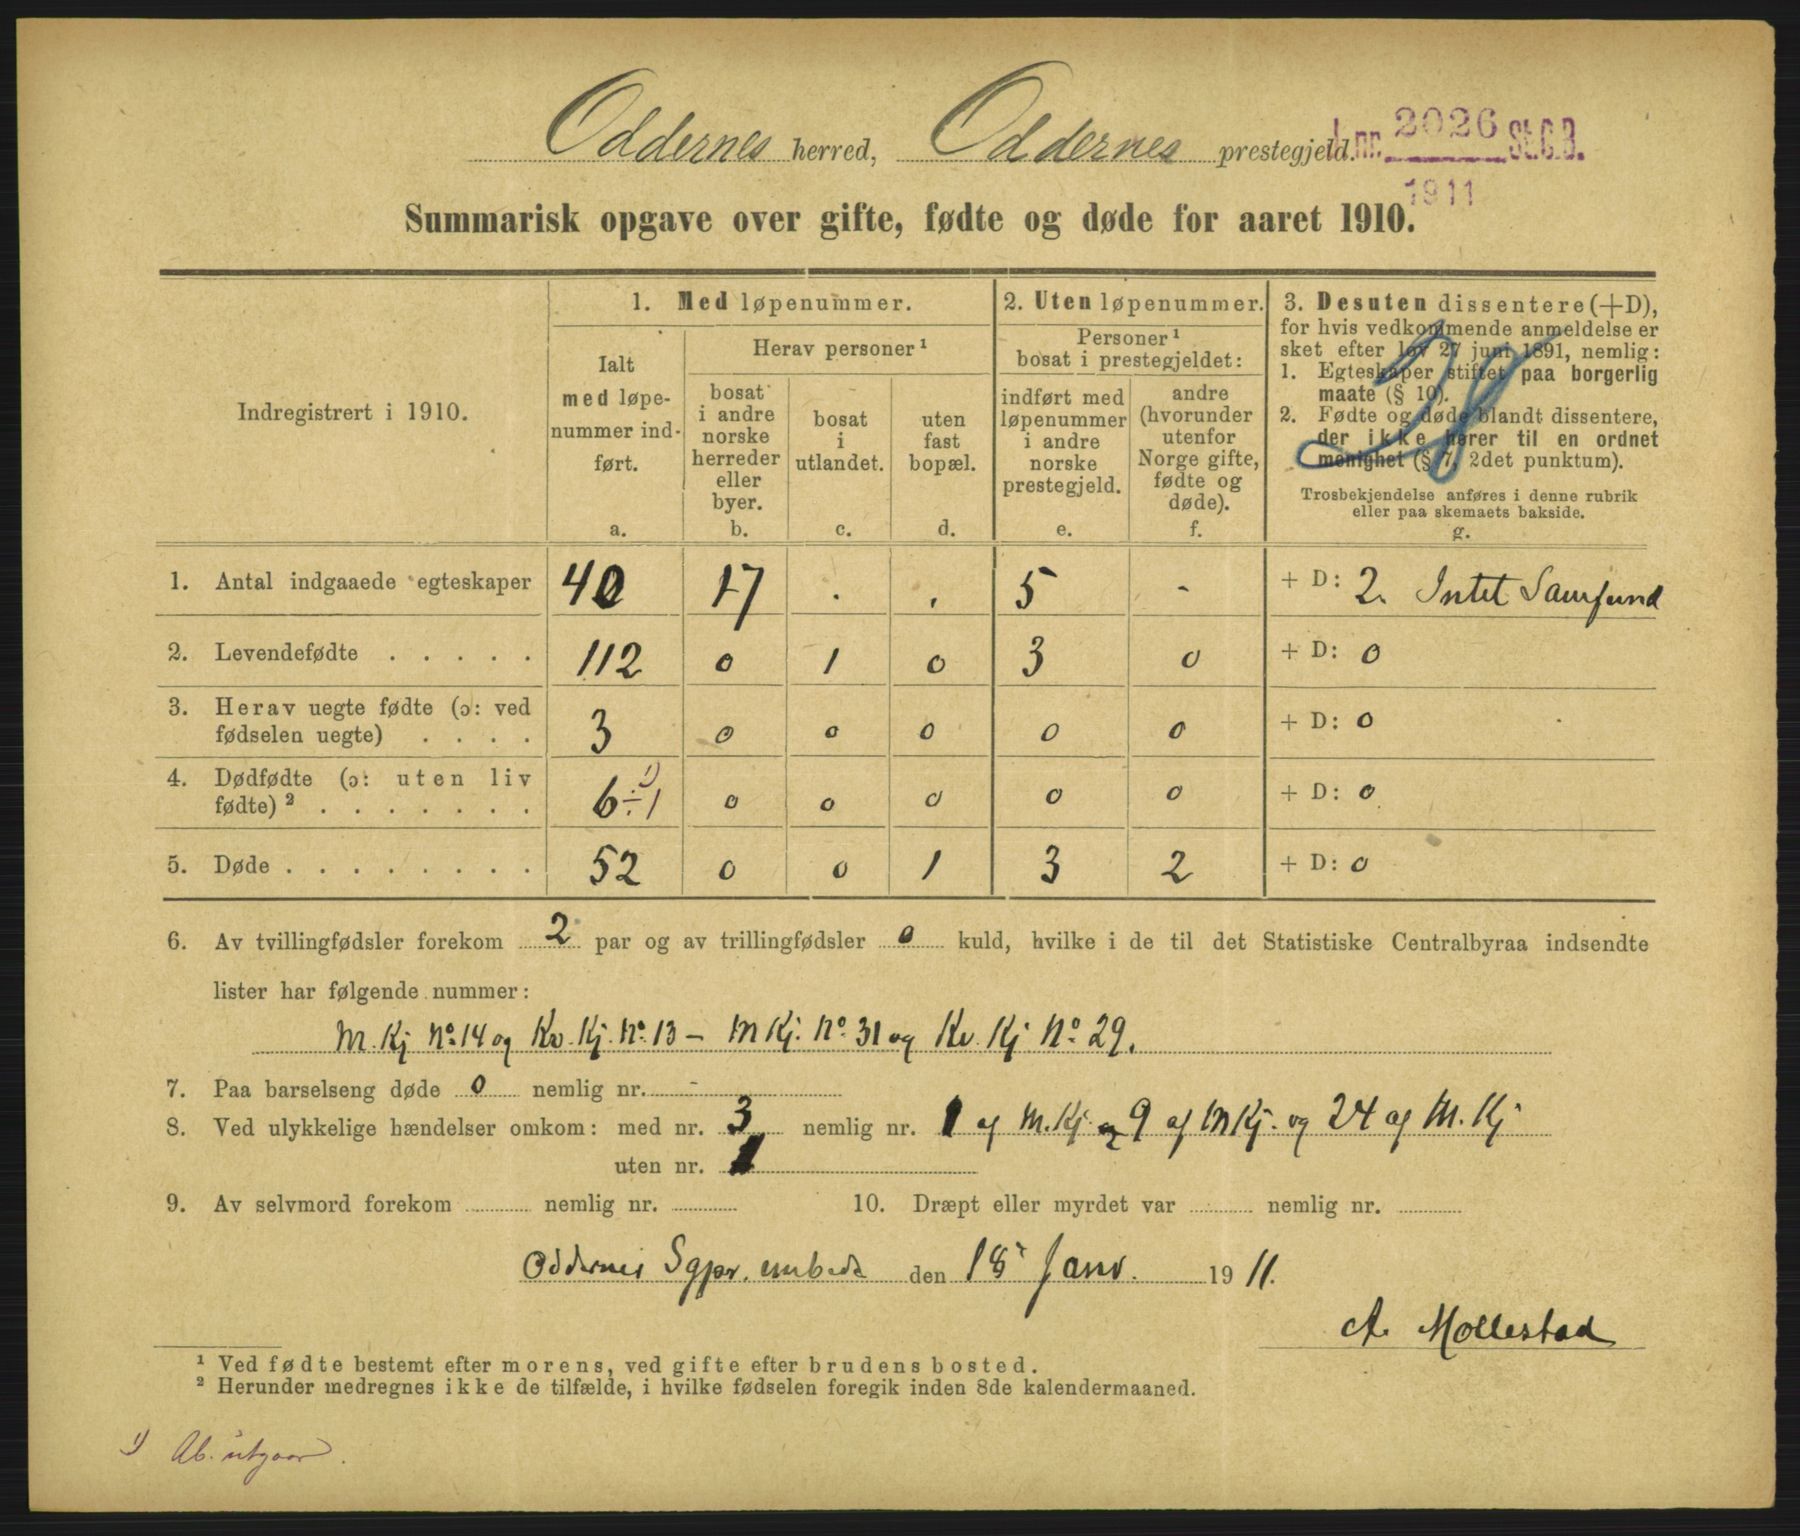 Oddernes herred, Oddernes prestegjeld.
J.nr. 2026 St.C.B.
1911
Summarisk opgave over gifte, fødte og døde for aaret 1910.
Indregistrert i 1910.
1. Med løpenummer.
Ialt med løpenummer indført.
a.
Herav personer ¹
bosat i andre norske herreder eller byer.
b.
bosat i utlandet.
c.
uten fast bopæl.
d.
2. Uten løpenummer.
Personer ¹ bosat i prestegjeldet:
indført med løpenummer i andre norske prestegjeld.
e.
andre (hvorunder utenfor Norge gifte, fødte og døde).
f.
3. Desuten dissentere (+D),
for hvis vedkommende anmeldelse er
sket efter lov 27 juni 1891, nemlig:
1. Egteskaper stiftet paa borgerlig
maate (§ 10).
2. Fødte og døde blandt dissentere,
der ikke hører til en ordnet
menighet (§ 7, 2det punktum).
Trosbekjendelse anføres i denne rubrik
eller paa skemaets bakside.
g.
1. Antal indgaaede egteskaper 40 17 . . 5 - + D: 2. Intet Samfund
2. Levendefødte . . . . . 112 0 1 0 3 0 + D: 0
3. Herav uegte fødte (ɔ: ved
fødselen uegte) . . . . 3 0 0 0 0 0 + D: 0
4. Dødfødte (ɔ: uten liv
fødte) ² . . . . . . . 6÷1 ¹) 0 0 0 0 0 + D: 0
5. Døde . . . . . . . . 52 0 0 1 3 2 + D: 0
6. Av tvillingfødsler forekom 2 par og av trillingfødsler 0 kuld, hvilke i de til det Statistiske Centralbyraa indsendte
lister har følgende nummer:
M. Kj No. 14 og Kv. Kj. No. 13 – M Kj. No. 31 og Kv. Kj No. 29.
7. Paa barselseng døde 0 nemlig nr. -
8. Ved ulykkelige hændelser omkom: med nr. 3 nemlig nr. 1 af M. Kj. og 9 af M Kj. og 24 af M. Kj
uten nr. 1
9. Av selvmord forekom nemlig nr. 10. Dræpt eller myrdet var nemlig nr.
Oddernes Sgpr. embede den 18 Janv. 1911.
A. Mollestad
¹ Ved fødte bestemt efter morens, ved gifte efter brudens bosted.
² Herunder medregnes ikke de tilfælde, i hvilke fødselen foregik inden 8de kalendermaaned.
¹) Ab. utgaar.